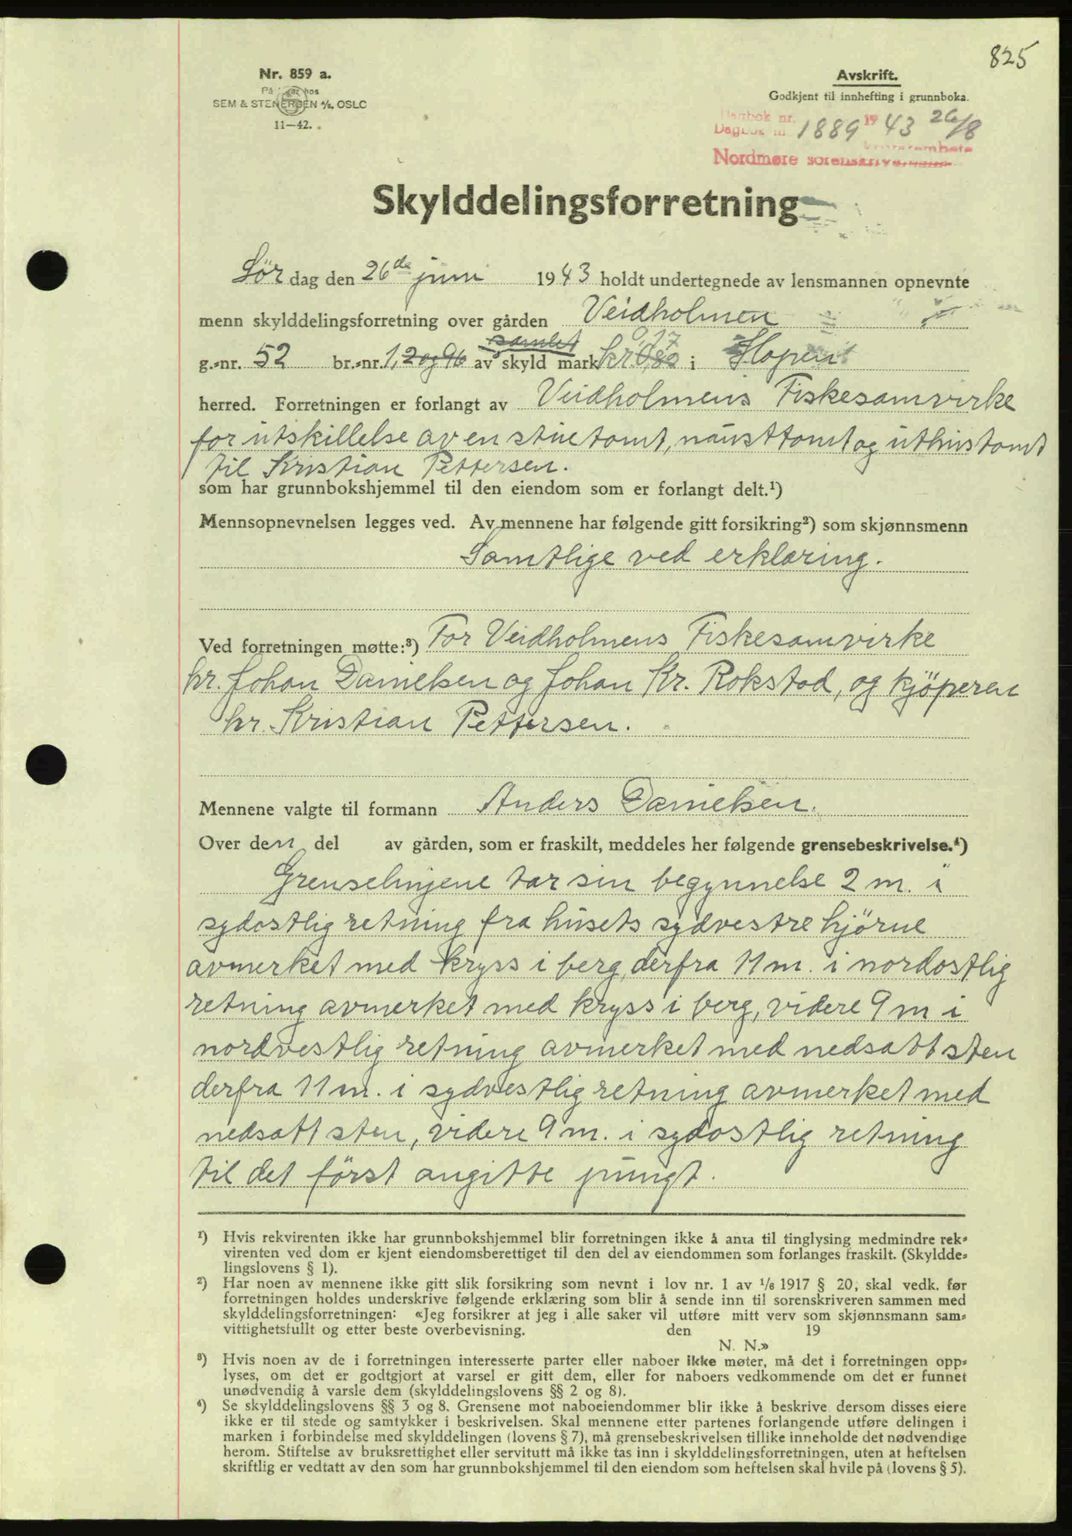 825
Nr. 859 a.
På lager hos
SEM & STENERSEN A/S. OSLO
11—42.
Avskrift.
Godkjent til innhefting i grunnboka.
Dagbok nr. 1889 1943 26/8
Nordmøre sorenskriverembete
Skylddelingsforretning
Lør dag den 26de juni 1943 holdt undertegnede av lensmannen opnevnte
menn skylddelingsforretning over gården Veidholmen
g.-nr. 52 br.-nr. 1, 2 og 96 av samlet skyld mark i Hopen
herred. Forretningen er forlangt av Veidholmens Fiskesamvirke
for utskillelse av en stuetomt, nausttomt og uthustomt
til Kristian Pettersen.
som har grunnbokshjemmel til den eiendom som er forlangt delt.¹)
Mennsopnevnelsen legges ved. Av mennene har følgende gitt forsikring²) som skjønnsmenn
Samtlige ved erklæring.
Ved forretningen møtte:³) For Veidholmens Fiskesamvirke
hr. Johan Danielsen og Johan Kr. Rokstad, og kjöperen
hr. Kristian Pettersen.
Mennene valgte til formann Anders Danielsen.
Over den del av gården, som er fraskilt, meddeles her følgende grensebeskrivelse.⁴)
Grenselinjene tar sin begynnelse 2 m. i
sydostlig retning fra husets sydvestre hjørne
avmerket med kryss i berg, derfra 11 m. i nordostlig
retning avmerket med kryss i berg, videre 9 m i
nordvestlig retning avmerket med nedsatt sten
derfra 11 m. i sydvestlig retning avmerket med
nedsatt sten, videre 9 m. i sydostlig retning
til det först angitte pungt.
¹) Hvis rekvirenten ikke har grunnbokshjemmel blir forretningen ikke å anta til tinglysing medmindre rek-
virenten ved dom er kjent eiendomsberettiget til den del av eiendommen som forlanges fraskilt. (Skyldde-
lingslovens § 1).
²) Har noen av mennene ikke gitt slik forsikring som nevnt i lov nr. 1 av 1/6 1917 § 20, skal vedk. før
forretningen holdes underskrive følgende erklæring som blir å sende inn til sorenskriveren sammen med
skylddelingsforretningen: «Jeg forsikrer at jeg i alle saker vil utføre mitt verv som skjønnsmann sam-
vittighetsfullt og etter beste overbevisning. den 19
N. N.»
³) Hvis noen av de i forretningen interesserte parter eller naboer ikke møter, må det i forretningen opp-
lyses, om det er godtgjort at varsel er gitt dem, eller for naboers vedkommende om det er funnet
unødvendig å varsle dem (skylddelingslovens §§ 2 og 8).
⁴) Se skylddelingslovens §§ 3 og 8. Grensene mot naboeiendommer blir ikke å beskrive dersom disses eiere
ikke er til stede og samtykker i beskrivelsen. Skal mennene etter partenes forlangende utføre delingen i
marken i forbindelse med skylddelingen (lovens § 7), må grensebeskrivelsen tillike inneholde det nødvendige
herom. Stiftelse av bruksrettighet eller servitutt må ikke tas inn i skylddelingsforretningen, uten at heftelsen
skriftlig er vedtatt av den som har grunnbokshjemmel til den eiendom som heftelsen skal hvile på (lovens § 5).